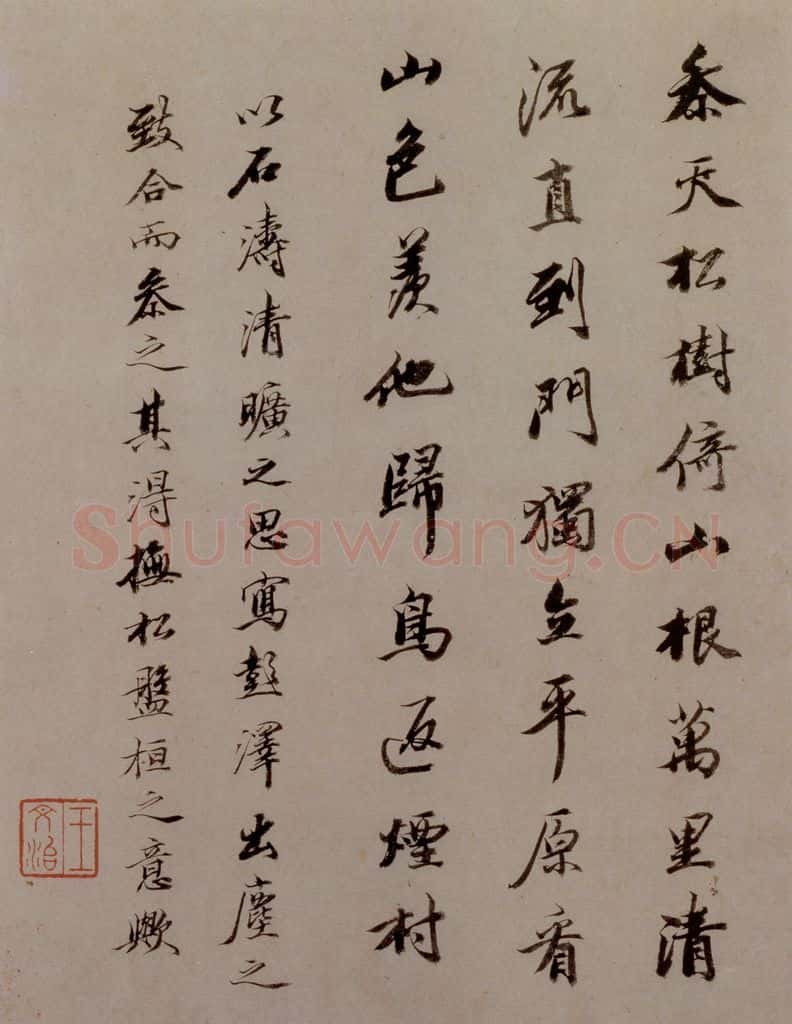 叅天松樹倚山根萬里清
流直到門獨立平原看
山色羨他歸鳥返煙村
以石濤清曠之思寫彭澤出塵之
致合而叅之其得撫松盤桓之意歟
王文治
Shufawang.CN